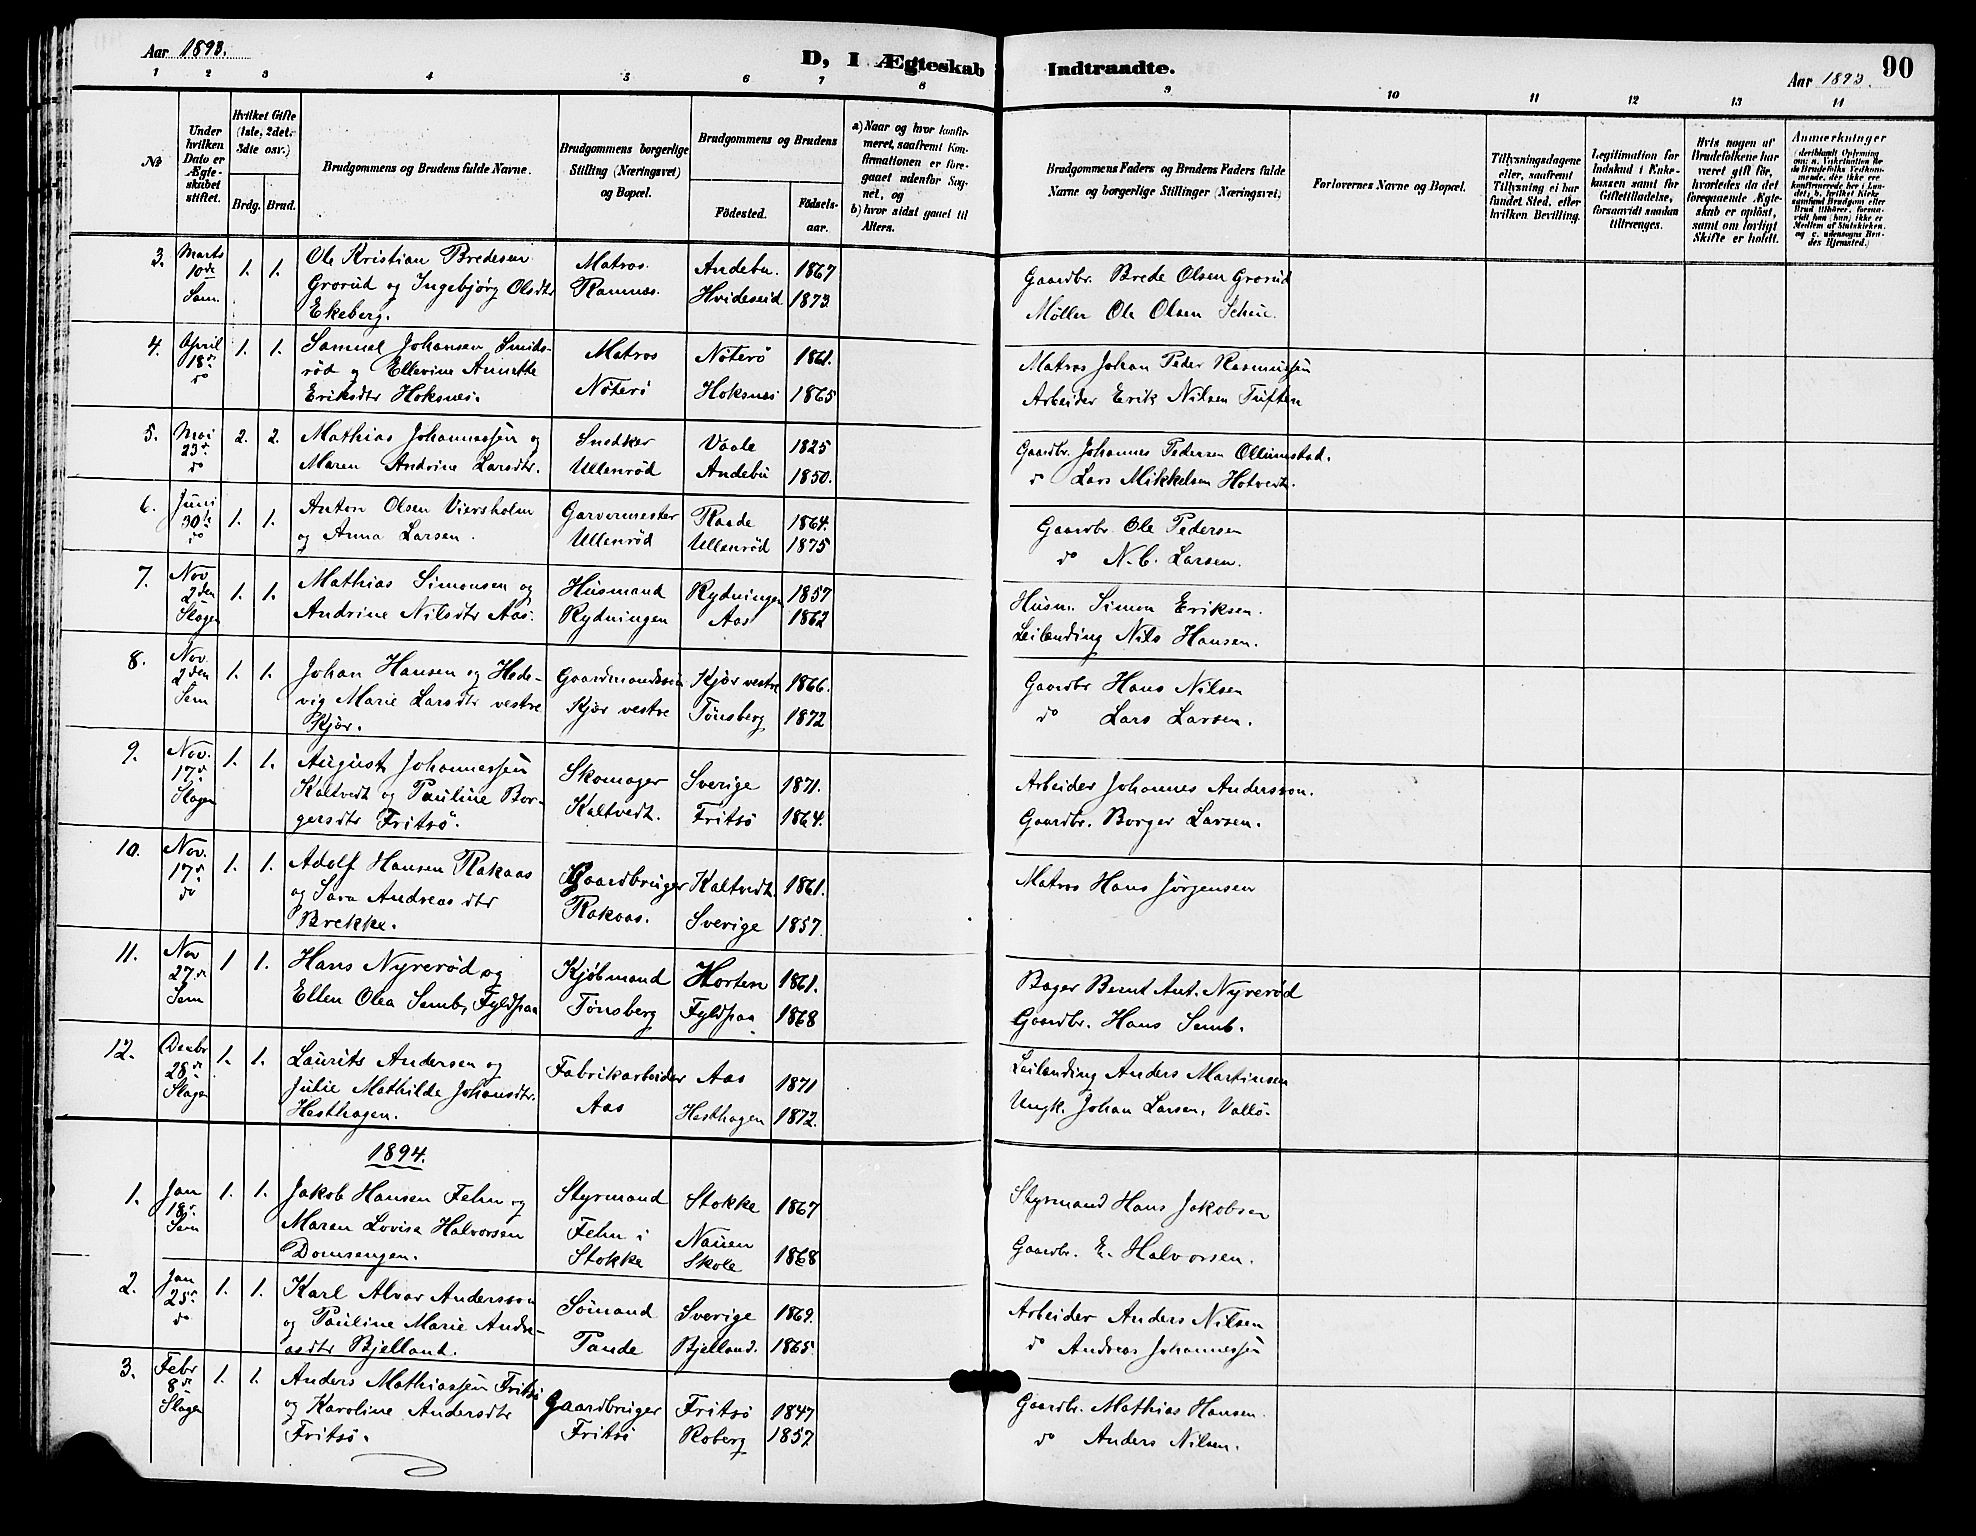 Aar 1893.
D, I Ægteskab Indtraadte.
Aar 1893.
90
1 2 3 4 5 6 7 8 9 10 11 12 13 14
No
Under hvilken Dato er Ægteskabet stiftet.
Hvilket Gifte (1ste, 2det, 3die osv.)
Brdg. Brud.
Brudgommens og Brudens fulde Navne.
Brudgommens borgerlige Stilling (Næringsvei) og Bopæl.
Brudgommens og Brudens
Födested.
Födsels-aar.
a) Naar og hvor konfirmeret, saafremt Konfirmationen er foregaaet udenfor Sognet, og
b) hvor sidst gaaet til Alters.
Brudgommens Faders og Brudens Faders fulde Navne og borgerlige Stillinger (Næringsvei)
Forlovernes Navne og Bopæl.
Tillysningsdagene eller, saafremt Tillysning ei har fundet Sted, efter hvilken Bevilling.
Legitimation for Indskud i Enkekassen samt for Giftetilladelse, forsaavidt saadan tiltrænges.
Hvis nogen af Brudefolkene har været gift för, hvorledes da det foregaaende Ægteskab er oplöst, samt om lovligt Skifte er holdt.
Anmerkninger
3. Marts 10de Sem. 1. 1.
Ole Kristian Bredesen
Grorud og Ingebjörg Olsdtr
Ekeberg.
Matros.
Ramnes.
Andebu. 1867
Hvideseid 1873.
Gaardbr. Brede Olsen Grorud
Møller Ole Olsen Scheie.
4. April 18de do 1. 1.
Samuel Johansen Smids-
röd og Ellevine Annette
Eriksdtr Hoksnes.
Matros
Nöterö
Nöterö 1861.
Hoksnes 1865
Matros Johan Peder Rasmussen
Arbeider Erik Nilsen Tuften
5. Mai 23de do 2. 2.
Mathias Johannessen og
Maren Andrine Larsdtr.
Snedker
Ullenröd
Vaale 1825
Andebu 1850.
Gaardbr. Johannes Pedersen Ollumstad.
do Lars Mikkelsen Hotvedt.
6. Juni 30te do 1. 1.
Anton Olsen Viersholm
og Anna Larsen.
Garvermester
Ullenröd
Raade 1864.
Ullenröd 1875
Gaardbr. Ole Pedersen
do N. C. Larsen.
7. Nov 2den Slagen 1. 1.
Mathias Simonsen og
Andrine Nilsdtr Aas.
Husmand
Rydningen
Rydningen 1857
Aas 1862
Husm. Simon Eriksen.
Leilending Nils Hansen.
8. Nov 2den Sem 1. 1.
Johan Hansen og Hed-
vig Marie Larsdtr vestre
Kjör.
Gaardmandssön
Kjör vestre
Kjör vestre 1866.
Tönsberg 1872
Gaardbr Hans Nilsen
do Lars Larsen.
9. Nov. 17de Slagen 1. 1.
August Johannessen
Kaltvedt og Pauline Bor-
gersdtr Fritsö.
Skomager
Kaltvedt.
Sverige 1871.
Fritsö 1864.
Arbeider Johannes Andersson.
Gaardbr. Borger Larsen.
10. Nov. 17de do 1. 1.
Adolf Hansen Rakaas
og Sara Andreasdtr
Brekke.
Gaardbruger
Rakaas.
Kaltvedt. 1861.
Sverige 1857.
Matros Hans Jörgensen
11. Nov 27de Sem 1 1.
Hans Nyreröd og
Ellen Olea Semb, Fyldpaa
Kjöbmand
Tönsberg
Horten 1861.
Fyldpaa 1868
Bager Bernt Ant. Nyreröd
Gaardbr. Hans Semb.
12. Decbr 28de Slagen 1. 1.
Laurits Andersen og
Julie Mathilde Johansdtr.
Hesthagen.
Fabrikarbeider
Aas
Aas 1871
Hesthagen 1872.
Leilending Anders Martinsen
Ungk. Johan Larsen, Vallö.
1894.
1. Jan 18de Sem 1. 1.
Jakob Hansen Fehn og
Maren Lovise Halvorsen
Domsengen.
Styrmand
Fehn i
Stokke
Stokke 1867
Nauen
Skole 1868
Styrmand Hans Jakobsen
Gaardbr. E. Halvorsen.
2. Jan 25de do 1. 1.
Karl Alvar Andersson
og Pauline Marie Andre-
asdtr Bjelland.
Sömand
Tande
Sverige 1869.
Bjelland. 1865.
Arbeider Anders Nilsen
do Andreas Johannessen
3. Febr 8de Slagen 1. 1.
Anders Mathiassen Fritsö
og Karoline Andersdtr
Fritsö.
Gaardbruger
Fritsö
Fritsö 1847
Roberg 1857
Gaardbr. Mathias Hansen.
do Anders Nilsen.